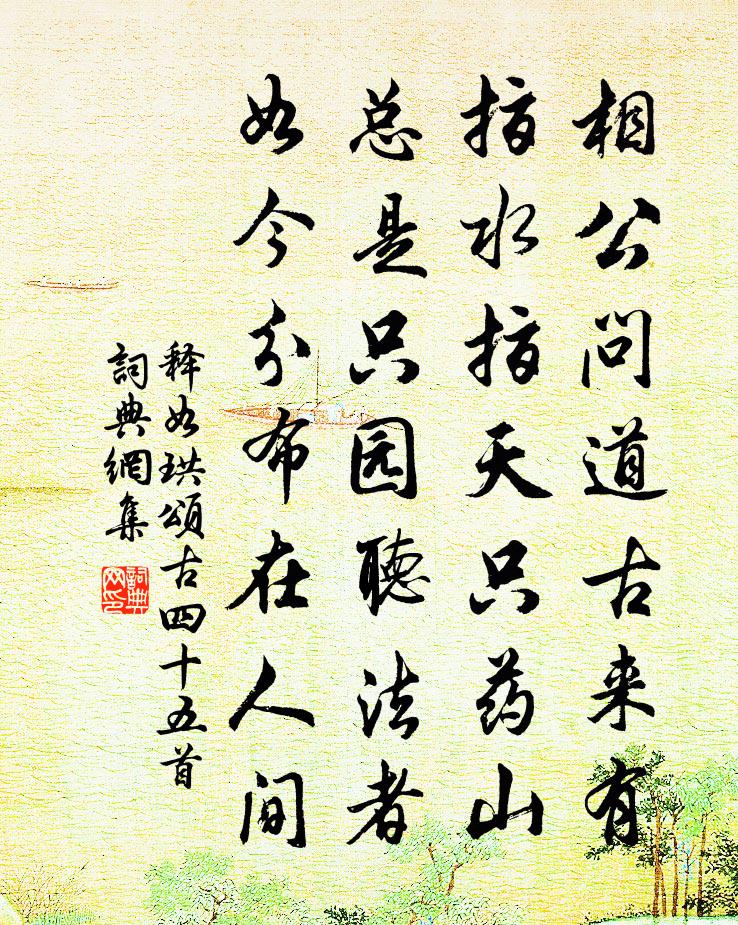 相公问道古来有
指水指天只药山
总是只园聴法者
如今分布在人间
释如珙頌古四十五首
詞典網集
詞典
网印